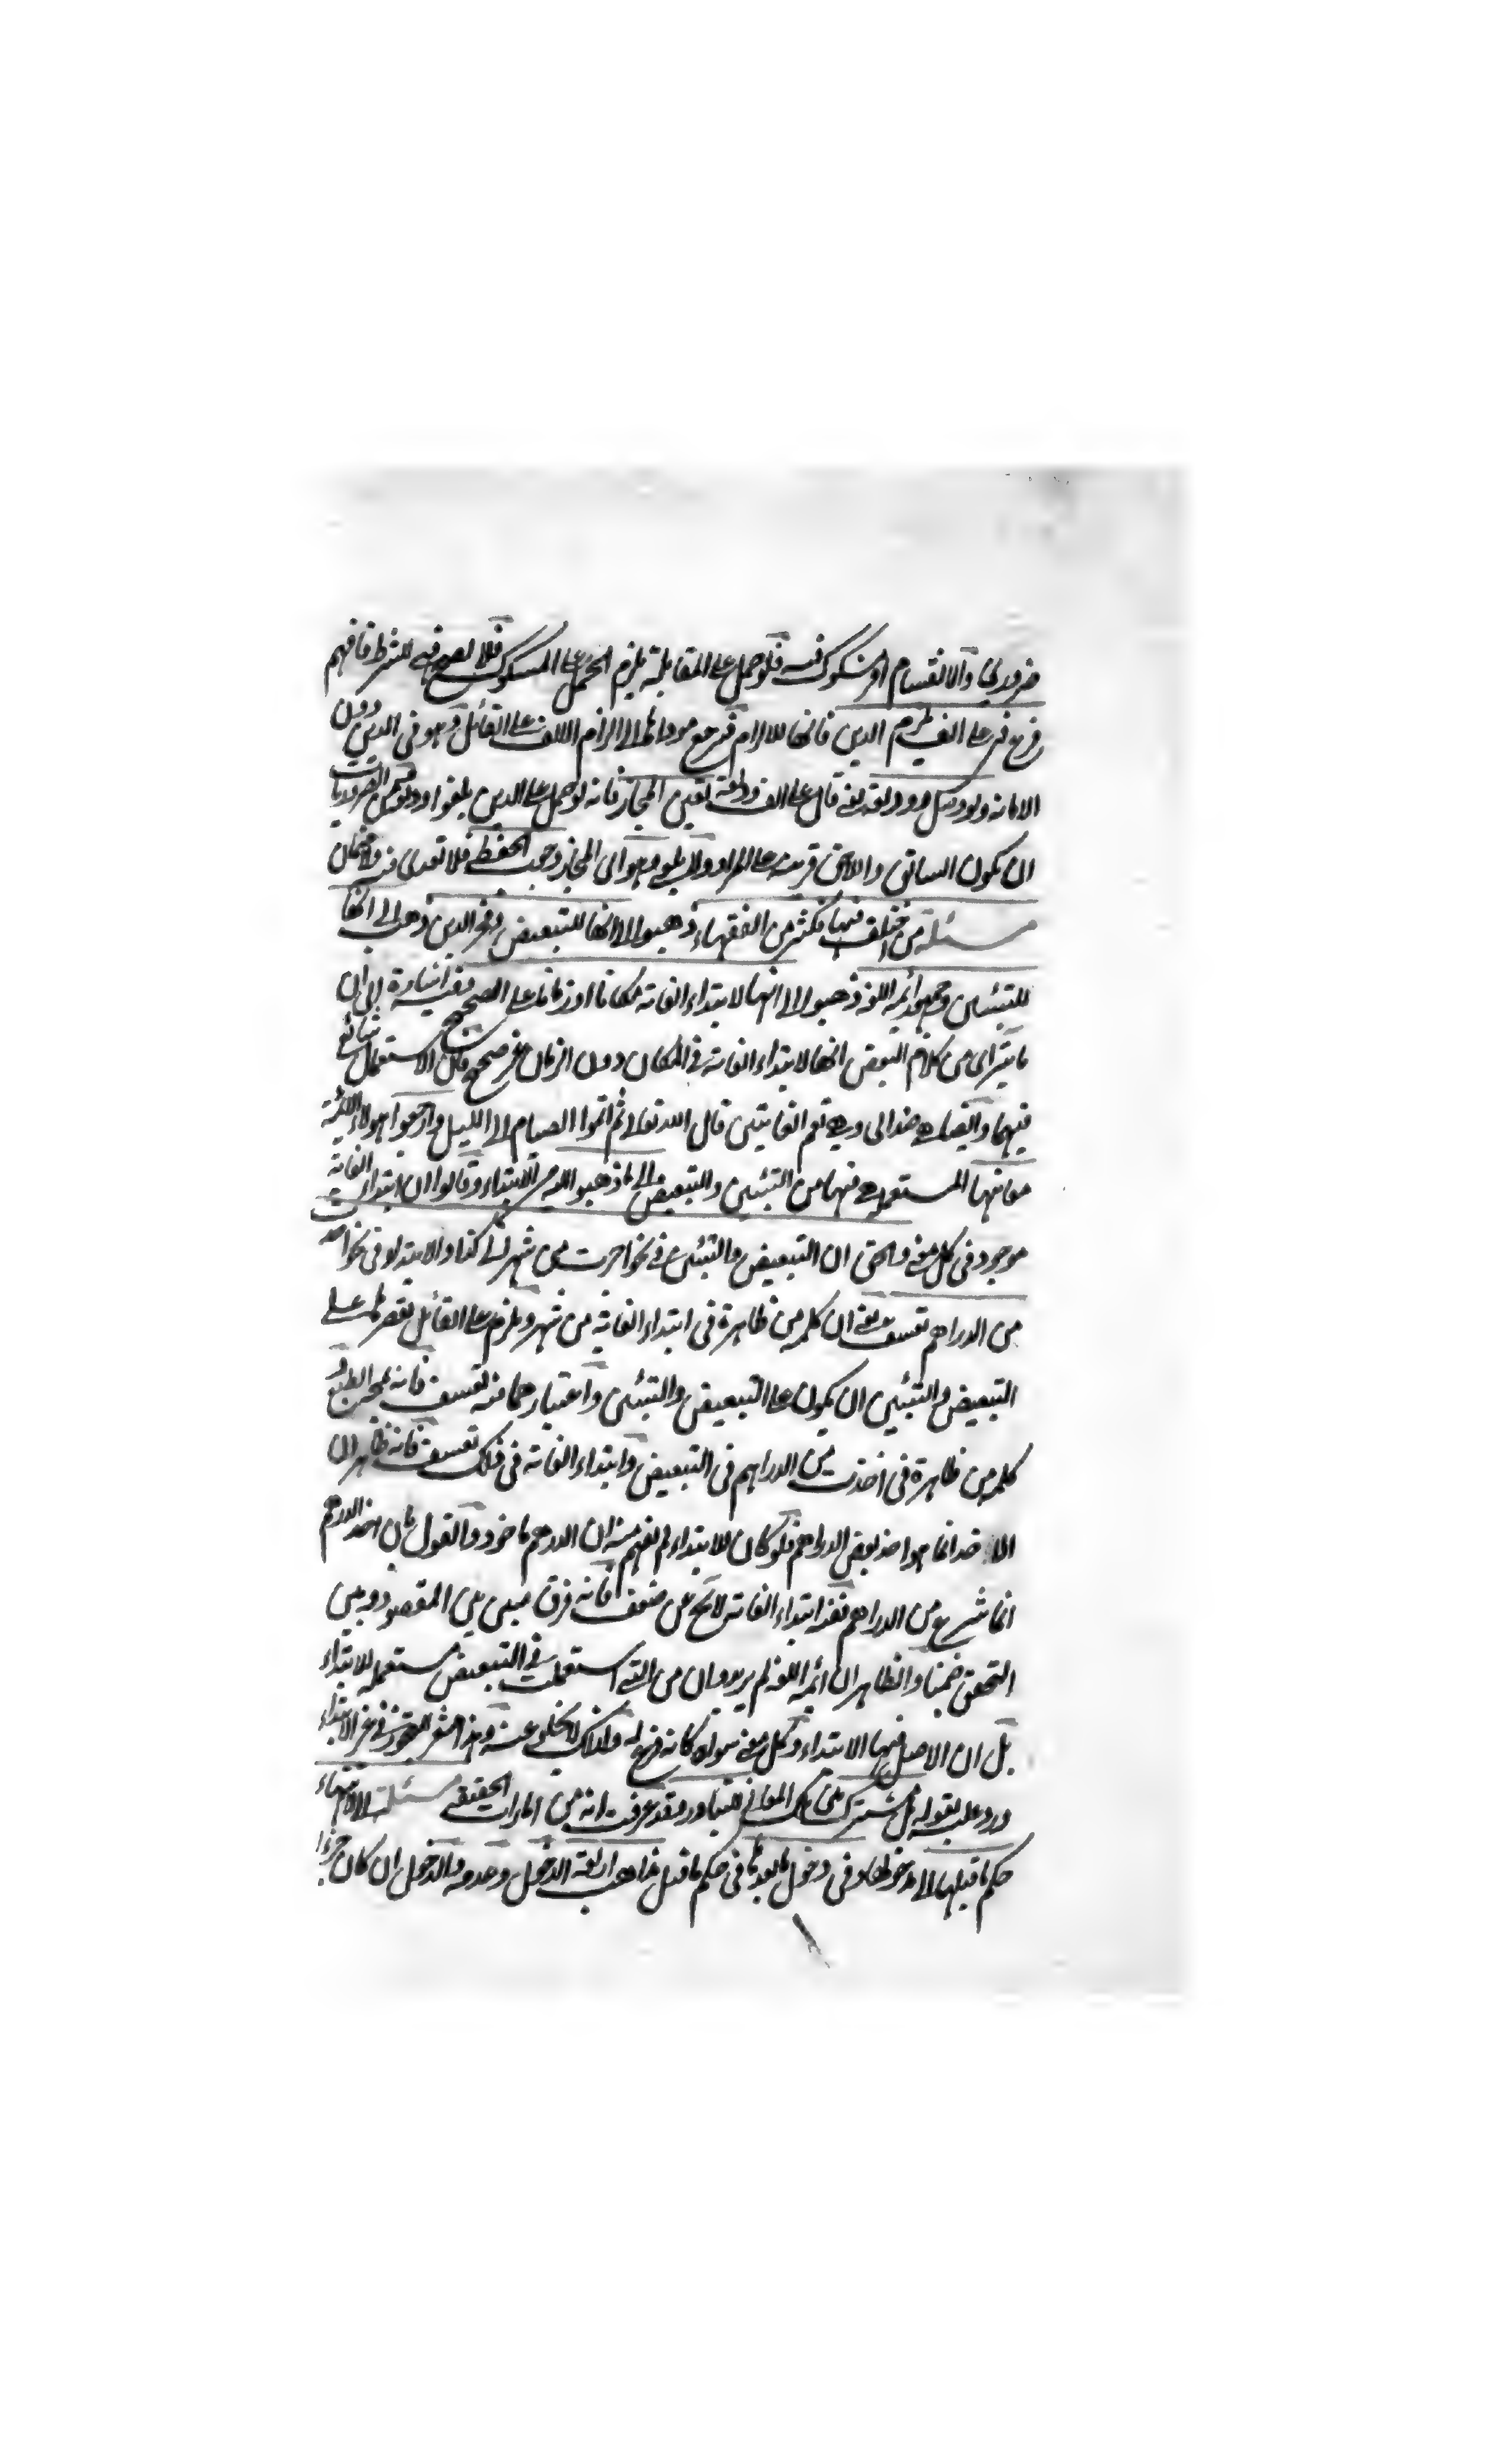 ضروري والانقسام امر مشكوك فيه فلو حمل على المقابلة يلزم الحمل على المشكوك فلا يصح فهي للشرط فافهم
فرع في على الف يلزم الدين فانها للالزام فيرجع مودها الى الزام الالف على القائل وهو في الدين دون
الامانة ولو وصل وديعة يعني قال على الف وديعة تعين المجاز فانه لو حمل على الدين يلغو الوديعة
ان يكون السابق واللاحق قرينة على المراد ولا يلغو وهو اي المجاز وجوب الحفظ فلا تعدى فيه ولا ضمان
مسئلة من اختلف فيها فكثير من الفقهاء ذهبوا الى انها للتبعيض وفخر الدين ذهب الى انها
للتبيين وجمهور ائمة اللغة ذهبوا الى انها لابتداء الغاية مكانا او زمانا على الصحيح وفيه اشارة الى ان
ما يتراى من كلام البعض انها لابتداء الغاية في المكان دون الزمان غير صحيح فان الاستعمال شائع
فيهما وايضا هي ضد الى وهي تعم الغايتين قال الله تعالى ثم اتموا الصيام الى الليل وارجعوا هولاء الائمة
معانيها المستعملة فيها من التبيين والتبعيض الى ما ذهبوا اليه من الابتداء وقالوا ان ابتداء الغاية
موجود في كل معنى والحق ان التبعيض والتبيين في نحو اجرت من شهر الى كذا والابتداء في نحو اخذت
من الدراهم تعسف يعني ان كلمة من ظاهرة في ابتداء الغاية من شهر ويلزم على القائل بقصرها على
التبعيض والتبيين ان يكون على التبعيض والتبيين واعتبارهما فيه تعسف فانه يمجه الطبع و
كلمة من ظاهرة في اخذت من الدراهم في التبعيض وابتداء الغاية في ذلك تعسف فانه ظاهر ان
الاخذ انما هو اخذ بعض الدراهم فلو كان للابتداء لم يفهم منه ان الدرهم ماخوذ والقول بان اخذ الدرهم
انما شرع من الدراهم ففيه ابتداء الغاية لا يخ عن ضعف فانه فرق مبين بين المقصود وبين
التحقق ضمنا والظاهر ان ائمة اللغة لم يريدوا ان من التي استعملت في التبعيض مستعملة للابتداء
بل ان الاصل فيها الابتداء وكل معنى سواه كانه فرع له ولذلك لا يخلو عنه وهذا مشعر بالتجوز في غير الابتداء
ورد عليه بقوله بل مشترك بين تلك المعاني للتبادر وقد عرفت انه من امارات الحقيقة مسئلة الى لانتهاء
حكم ما قبلها الى مدخولها وفي دخول ما بعدها في حكم ما قبل مذاهب اربعة الدخول وعدمه والدخول ان كان جزءا